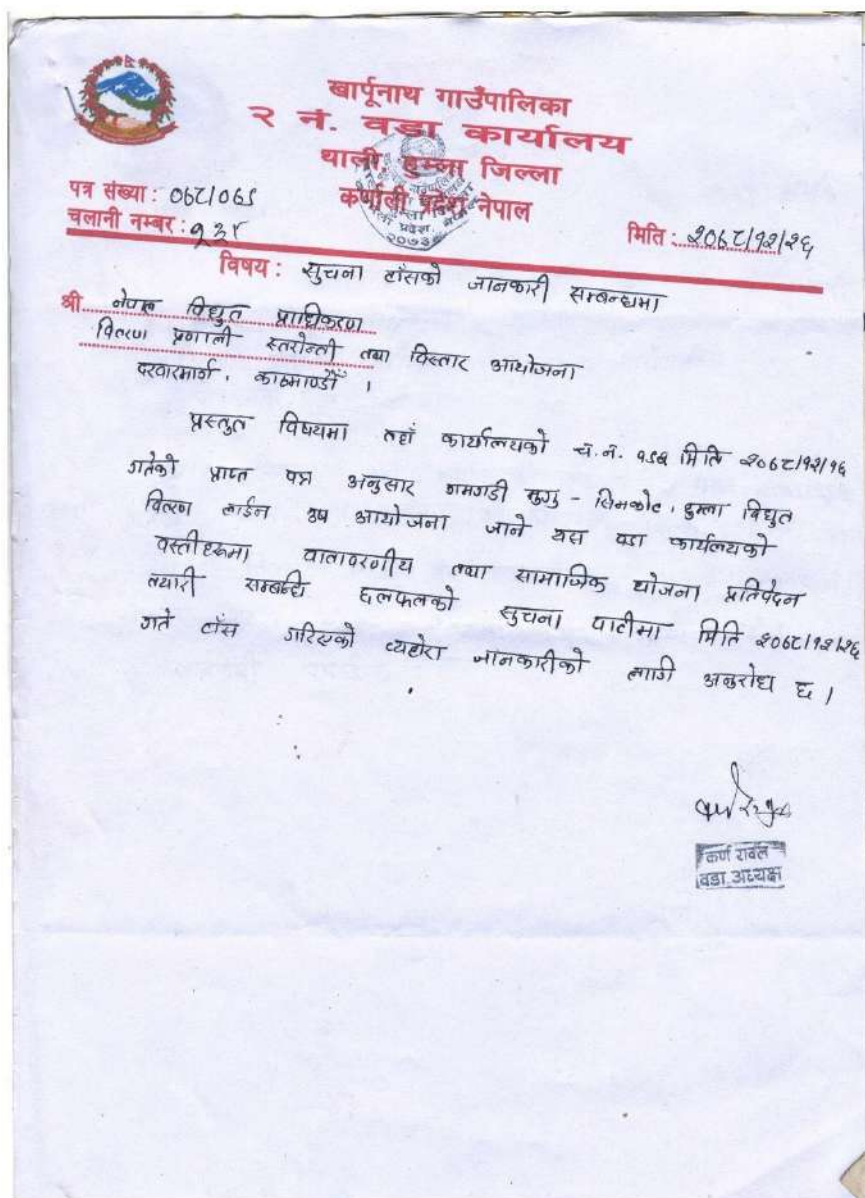 खार्पूनाथ गाउँपालिका
२ नं. वडा कार्यालय
थाली, हुम्ला जिल्ला
कर्णाली प्रदेश नेपाल
पत्र संख्या: ०७८/०७९
चलानी नम्बर:
मिति: २०७८/१२/२६
विषय: सुचना टाँसको जानकारी सम्बन्धमा
श्री नेपाल विद्युत प्राधिकरण
वितरण प्रणाली स्तरोन्नती तथा विस्तार आयोजना
दरवारमार्ग, काठमाण्डौँ ।
प्रस्तुत विषयमा तहाँ कार्यालयको च.नं. मिति २०७८/१२/१६
गतेको प्राप्त पत्र अनुसार गमगडी मुगु - सिमकोट, हुम्ला विद्युत
वितरण लाईन उप आयोजना जाने यस वडा कार्यलयको
वस्तीहरूमा वातावरणीय तथा सामाजिक योजना प्रतिवेदन
तयारी सम्बन्धि छलफलको सुचना पाटीमा मिति २०७८/१२/२६
गते टाँस गरिएको व्यहोरा जानकारीको लागी अनुरोध छ ।
कर्ण रावल
वडा अध्यक्ष